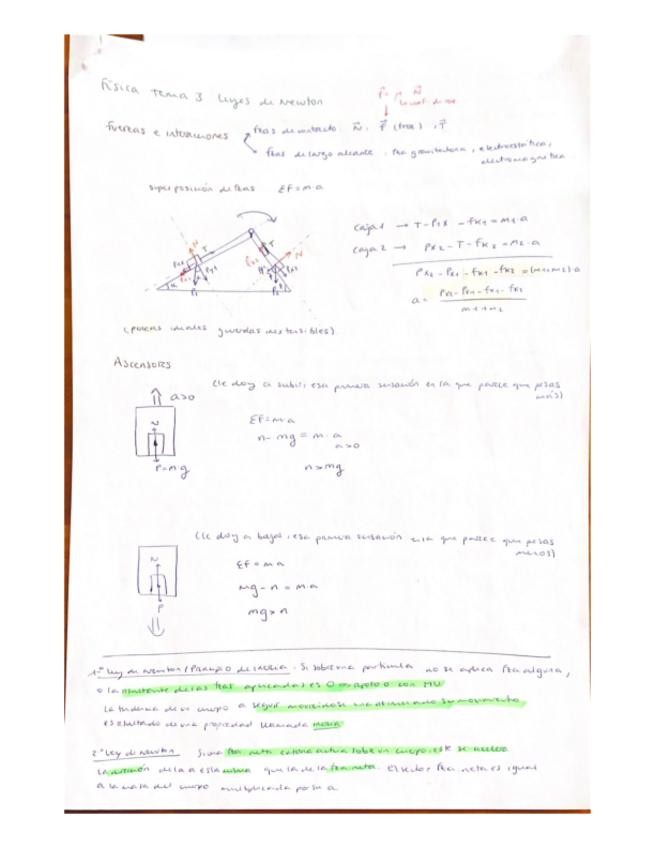 Física Tema 3 Leyes de Newton
F = μ · N
Fuerzas e interacciones
fzas de contacto: N, F (froz), T
fzas de largo alcance: fza gravitatoria, electrostática,
electromagnética
superposición de fzas ΣF = m·a
caja 1 → T - P1x - fk1 = m1·a
caja 2 → Px2 - T - fk2 = m2·a
Px2 - Px1 - fk1 - fk2 = (m1+m2)·a
a = Px2 - Px1 - fk1 - fk2
m1 + m2
N
T
N
T
(poleas ideales y cuerdas inextensibles)
Ascensores
(le doy a subir: esa primera sensación en la que parece que pesas
más)
a>0
ΣF = m·a
n - mg = m·a
a>0
N
P = m·g
n > mg
(le doy a bajar: esa primera sensación en la que parece que pesas
menos)
N
ΣF = m·a
mg - n = m·a
P
mg > n
1ª Ley de Newton / Principio de inercia. Si sobre una partícula no se aplica fza alguna,
o la resultante de las fzas aplicadas es 0 o con MU
La tendencia de un cuerpo a seguir moviéndose una vez iniciado su movimiento
es resultado de una propiedad llamada inercia
2ª Ley de Newton Si una fza neta externa actúa sobre un cuerpo, este se acelera
La dirección de la a es la misma que la de la fza neta. El vector fza neta es igual
a la masa del cuerpo multiplicada por su a